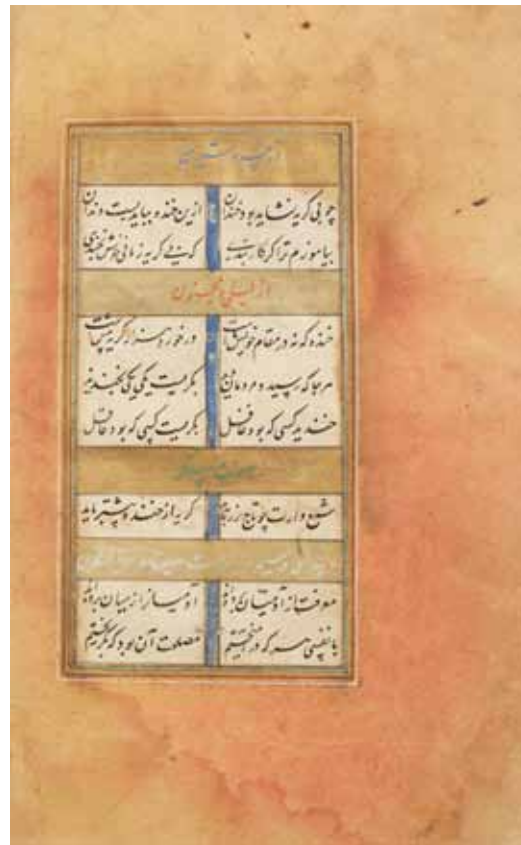 از خسرو و شیرین
چو بی گریه نشاید بود خندان ازین خنده بباید بست دندان
بیاموزم ترا گر کار بندی که بی گریه زمانی خوش بخندی
از لیلی و مجنون
خنده که نه در مقام خویش است در خورد هزار گریه بیش است
هرجا که رسید و مردمان بگریست یکی یکی
خندید کسی که بود غافل بگریست کسی که بود عاقل
هفت پیکر
شمع وارت چو تاج زر باید گریه از خنده بیشتر باید
معرفت از آدمیان برده‌اند آدمیان را ز میان برده‌اند
با نفسی هر که در آمیختم مصلحت آن بود که بگریختم